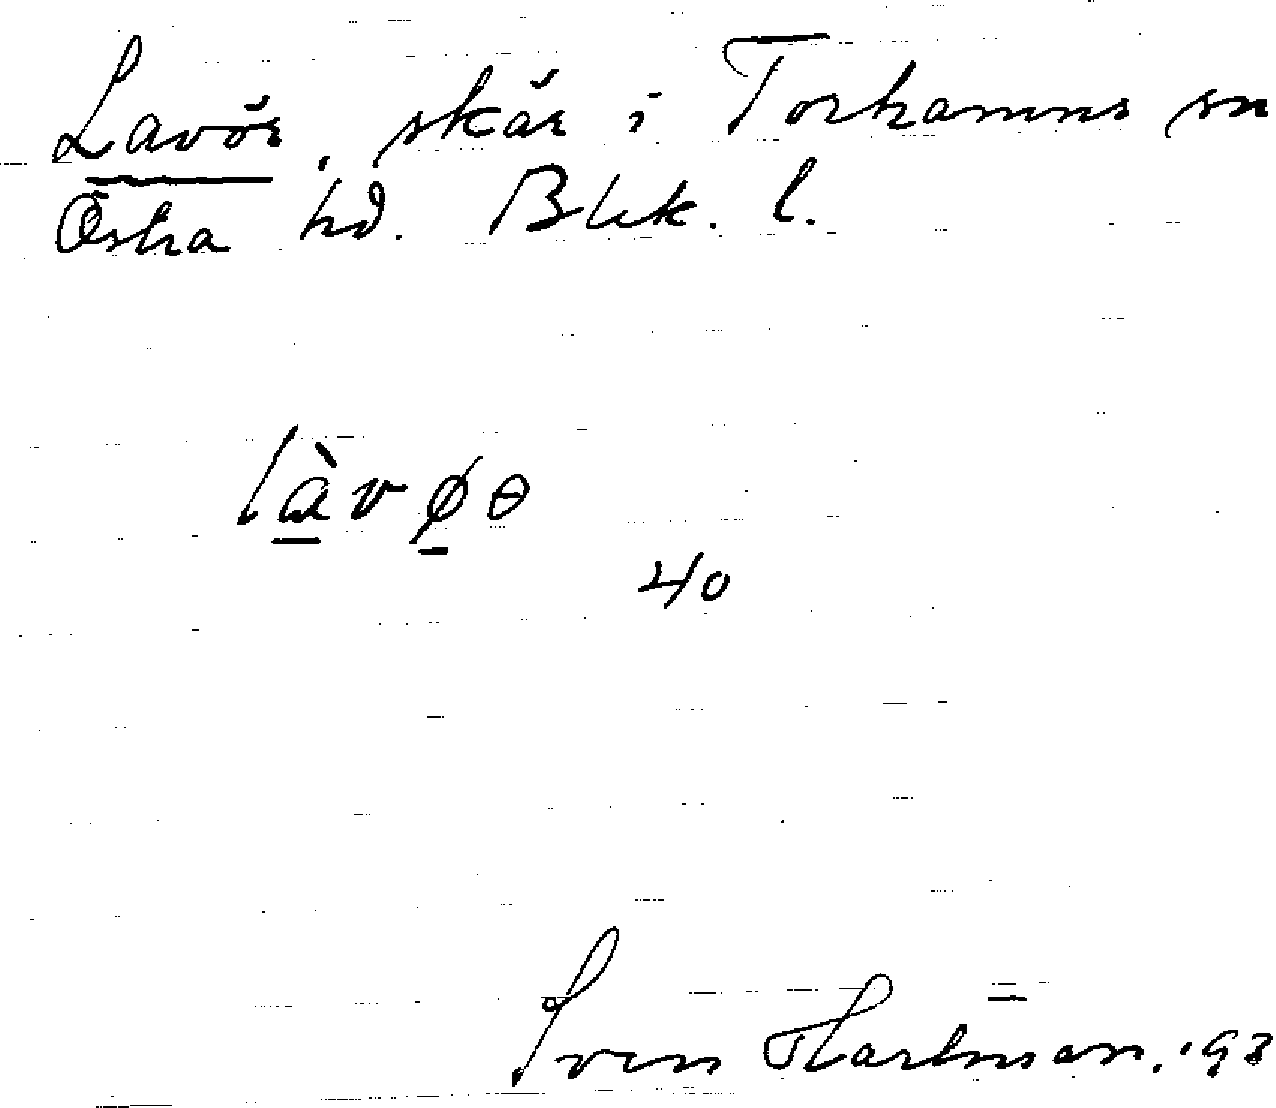 Lavör, skär i Torhamns sn
Östra hd. Blek. l.
làvøɵ
40
Sven Hartman. '93